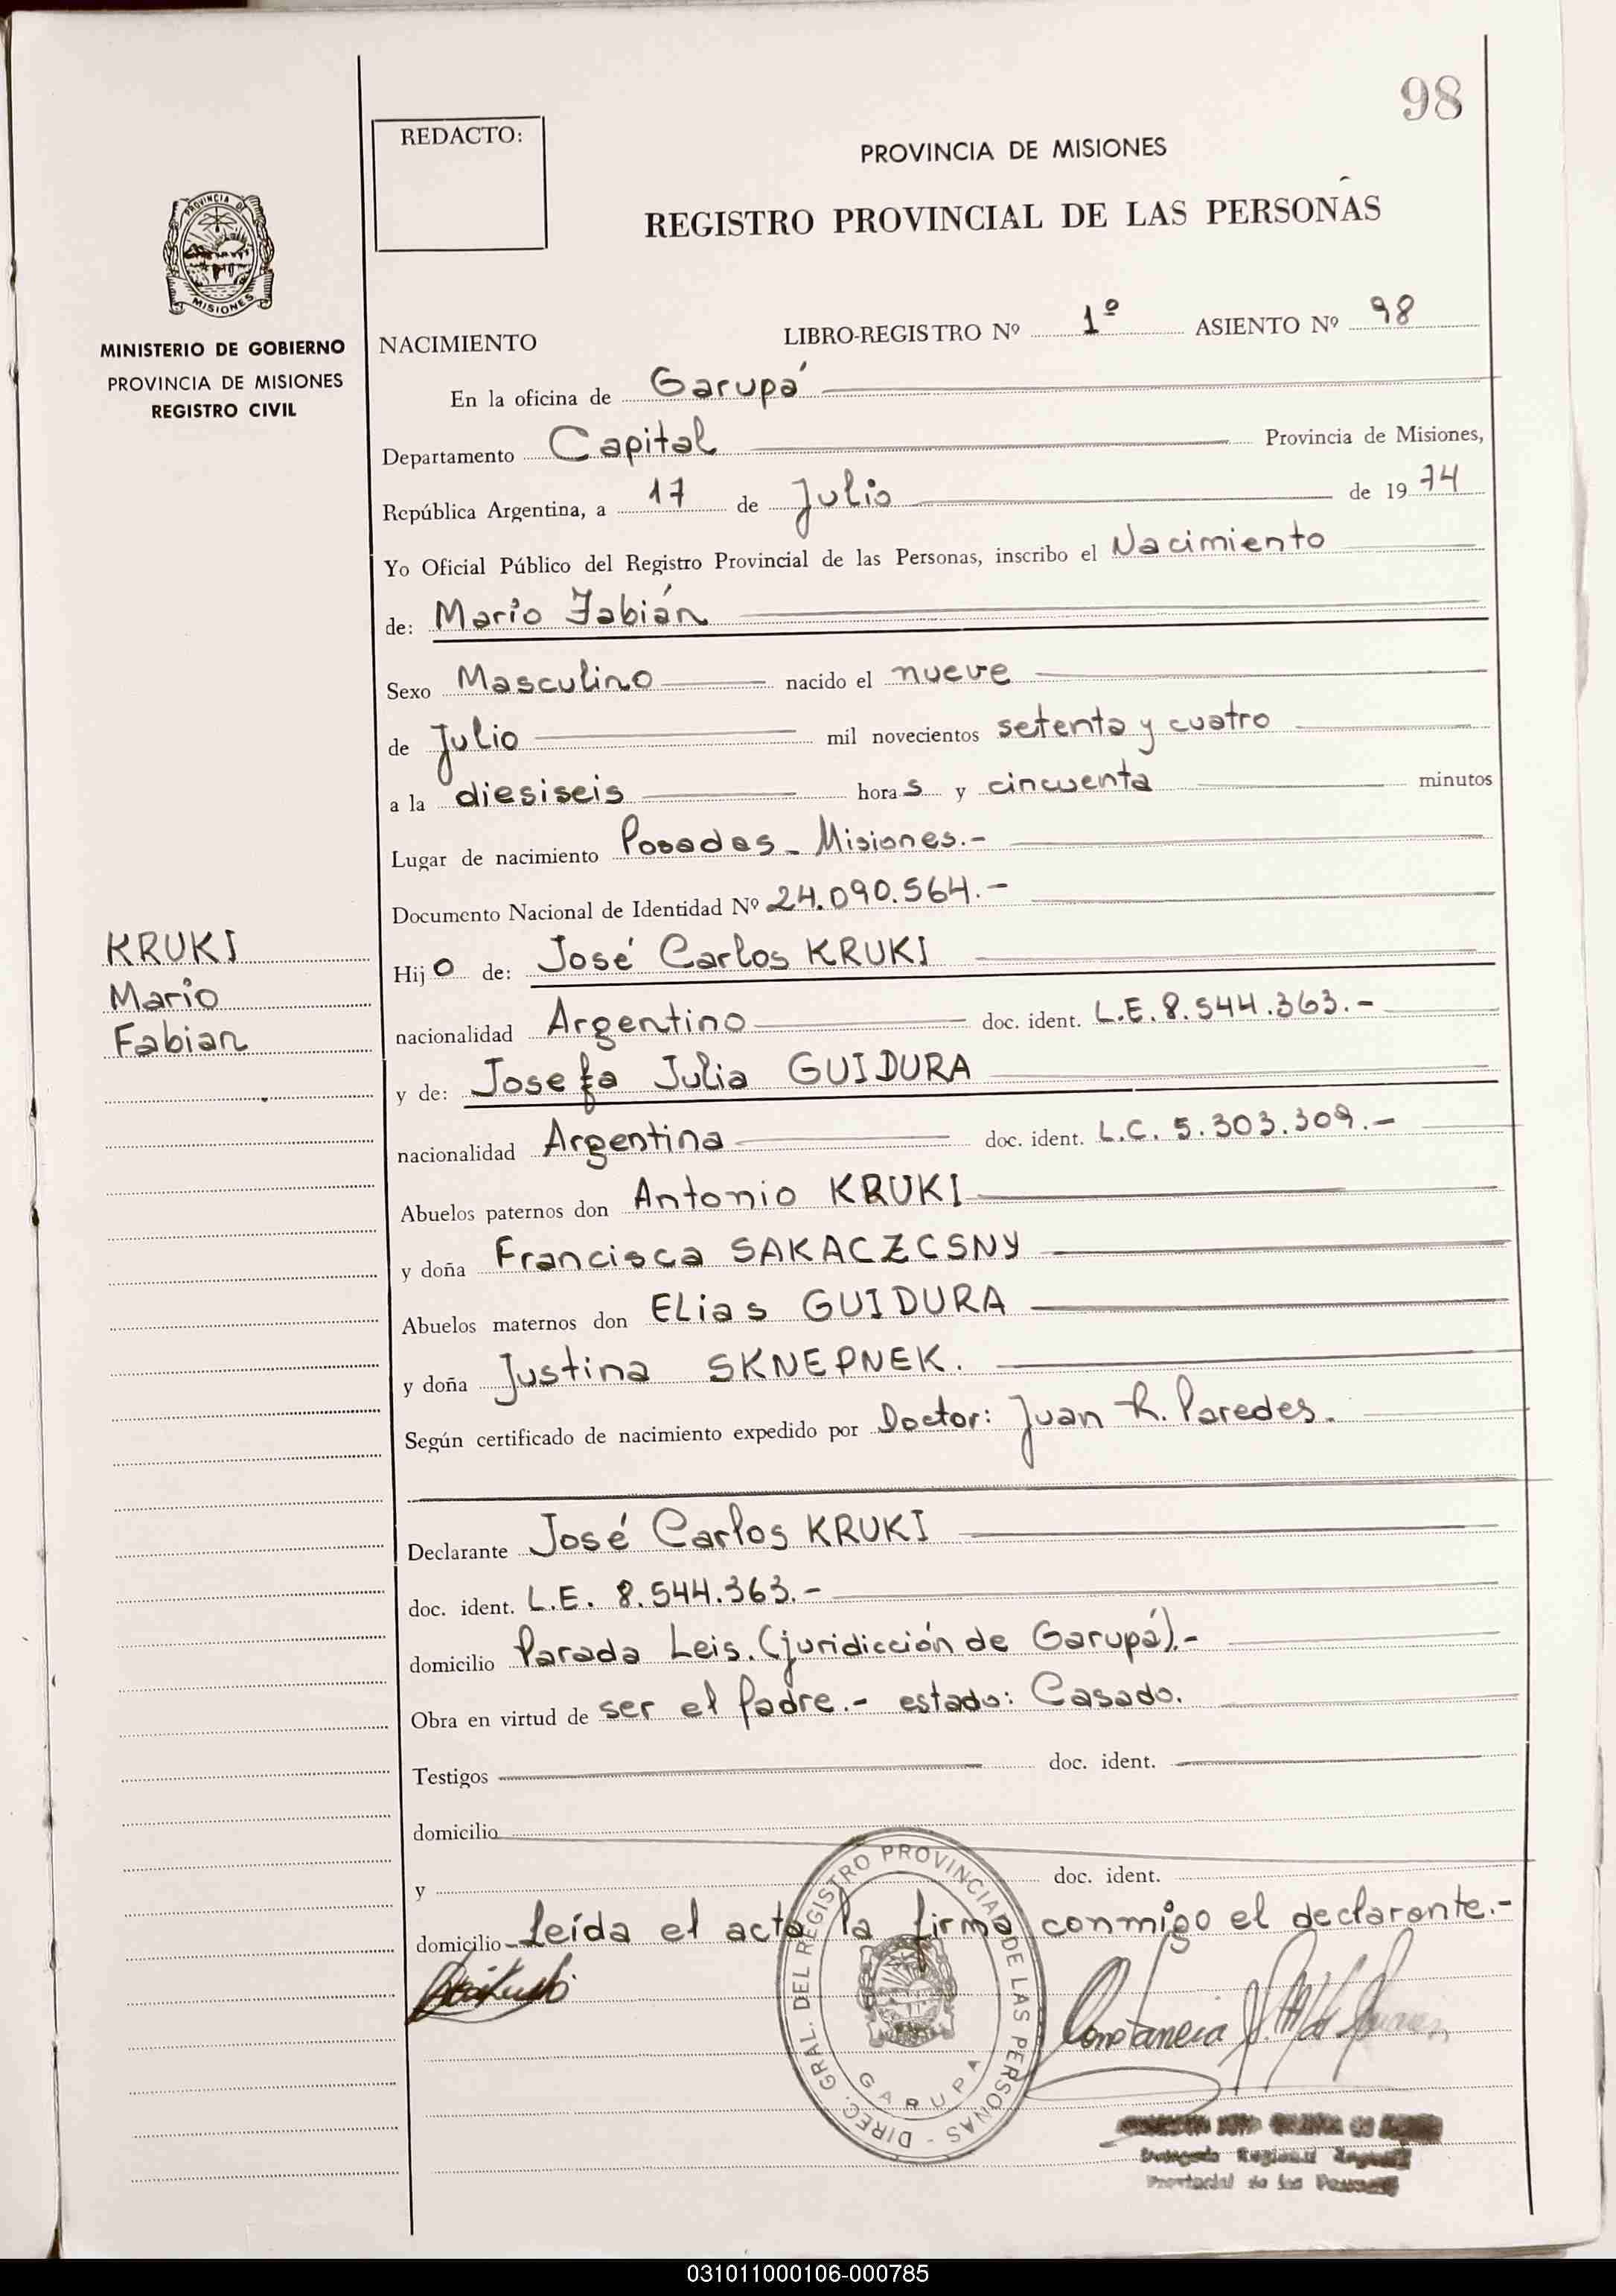 98
REDACTO:
PROVINCIA DE MISIONES
REGISTRO PROVINCIAL DE LAS PERSONAS
PROVINCIA DE
MISIONES
MINISTERIO DE GOBIERNO
PROVINCIA DE MISIONES
REGISTRO CIVIL
NACIMIENTO LIBRO-REGISTRO Nº 1º ASIENTO Nº 98
En la oficina de Garupá
Departamento Capital Provincia de Misiones,
República Argentina, a 17 de Julio de 1974
Yo Oficial Público del Registro Provincial de las Personas, inscribo el Nacimiento
de: Mario Fabián
Sexo Masculino nacido el nueve
de Julio mil novecientos setenta y cuatro
a la diesiseis horas y cincuenta minutos
Lugar de nacimiento Posadas - Misiones.-
Documento Nacional de Identidad Nº 24.090.564.-
KRUKI
Mario
Fabian
Hijo de: José Carlos KRUKI
nacionalidad Argentino doc. ident. L.E. 8.544.363.-
y de: Josefa Julia GUIDURA
nacionalidad Argentina doc. ident. L.C. 5.303.309.-
Abuelos paternos don Antonio KRUKI
y doña Francisca SAKACZCSNY
Abuelos maternos don ELias GUIDURA
y doña Justina SKNEPNEK.
Según certificado de nacimiento expedido por Doctor: Juan R. Paredes.
Declarante José Carlos KRUKI
doc. ident. L.E. 8.544.363.-
domicilio Parada Leis. (juridicción de Garupá).-
Obra en virtud de ser el padre.- estado: Casado.
Testigos doc. ident.
domicilio
y doc. ident.
domicilio Leída el acta la firma conmigo el declarante.-
DIREC. GRAL. DEL REGISTRO PROVINCIAL DE LAS PERSONAS -
GARUPA
Constancia
Regional
Provincial de las
031011000106-000785